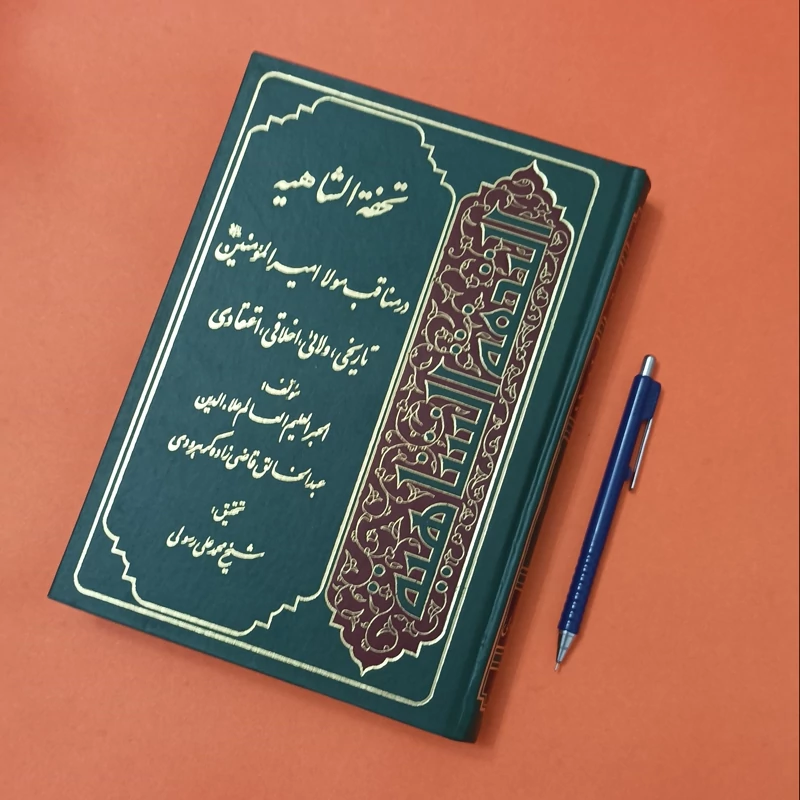 تحفة الشاهیه
در مناقب مولا امیرالمؤمنین
تاریخی، ولائی، اخلاقی، اعتقادی
مؤلف:
الحبر العلیم العالم علاءالدین
عبدالخالق قاضی‌زاده کرهرودی
تحقیق:
شیخ محمد علی رسولی
التحفه الشاهیه